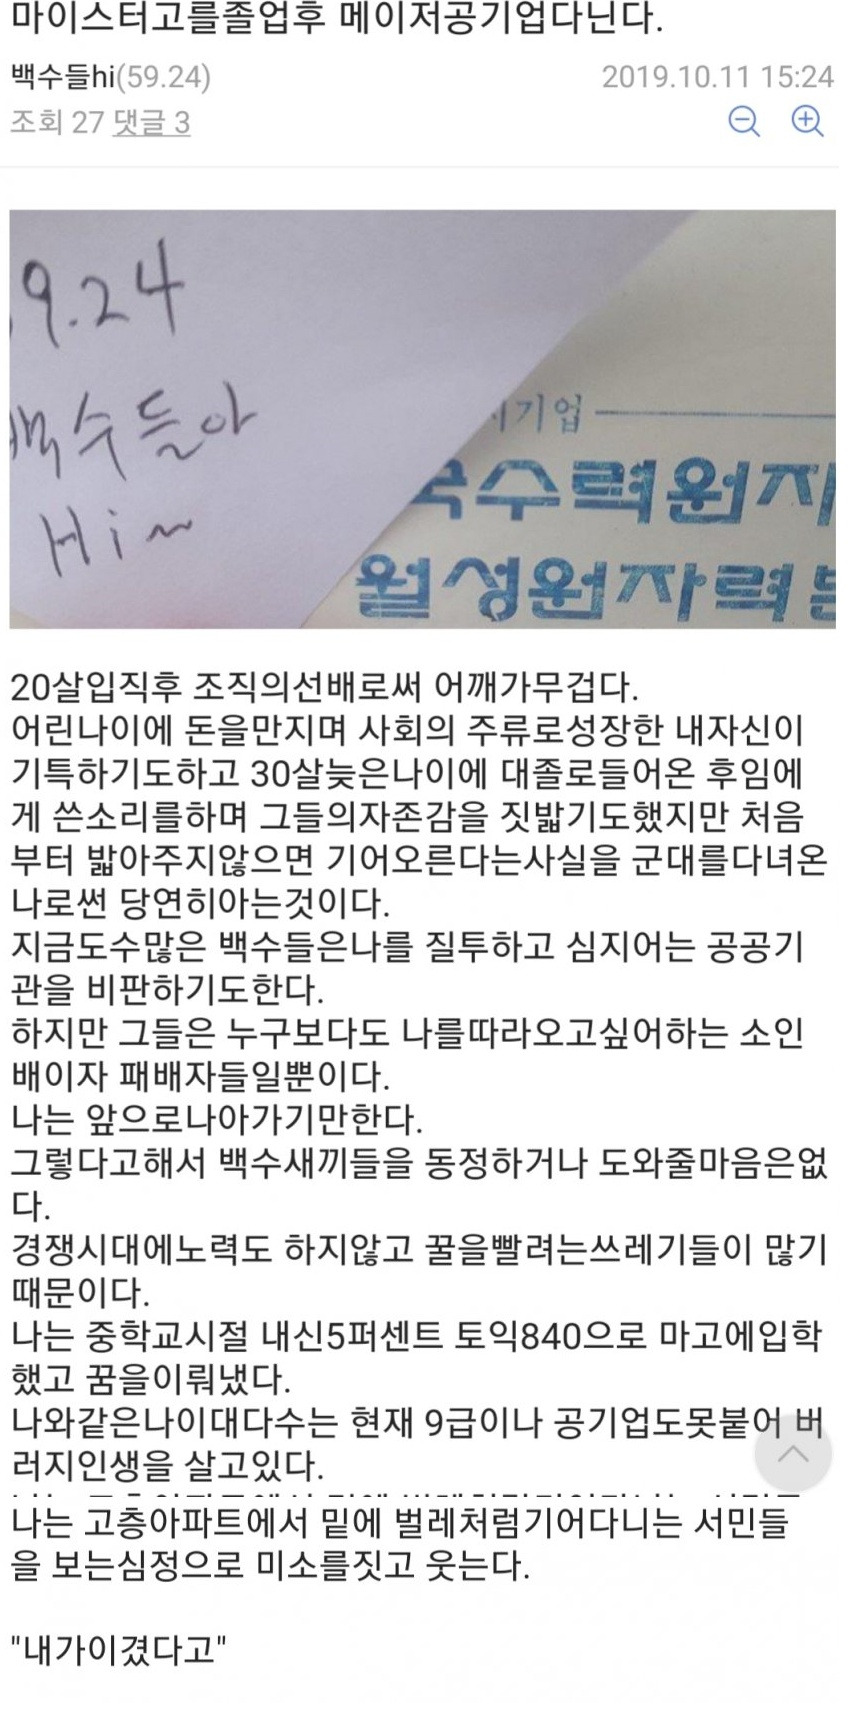 마이스터고를졸업후 메이저공기업다닌다.
백수들hi(59.24)
2019.10.11 15:24
조회 27 댓글 3
9.24
백수들아
Hi~
기업
수력원자
월성원자력
20살입직후 조직의선배로써 어깨가무겁다.
어린나이에 돈을만지며 사회의 주류로성장한 내자신이
기특하기도하고 30살늦은나이에 대졸로들어온 후임에
게 쓴소리를하며 그들의자존감을 짓밟기도했지만 처음
부터 밟아주지않으면 기어오른다는사실을 군대를다녀온
나로썬 당연히아는것이다.
지금도수많은 백수들은나를 질투하고 심지어는 공공기
관을 비판하기도한다.
하지만 그들은 누구보다도 나를따라오고싶어하는 소인
배이자 패배자들일뿐이다.
나는 앞으로나아가기만한다.
그렇다고해서 백수새끼들을 동정하거나 도와줄마음은없
다.
경쟁시대에노력도 하지않고 꿀을빨려는쓰레기들이 많기
때문이다.
나는 중학교시절 내신5퍼센트 토익840으로 마고에입학
했고 꿈을이뤄냈다.
나와같은나이대다수는 현재 9급이나 공기업도못붙어 버
러지인생을 살고있다.
나는 고층아파트에서 밑에 벌레처럼기어다니는 서민들
을 보는심정으로 미소를짓고 웃는다.
"내가이겼다고"